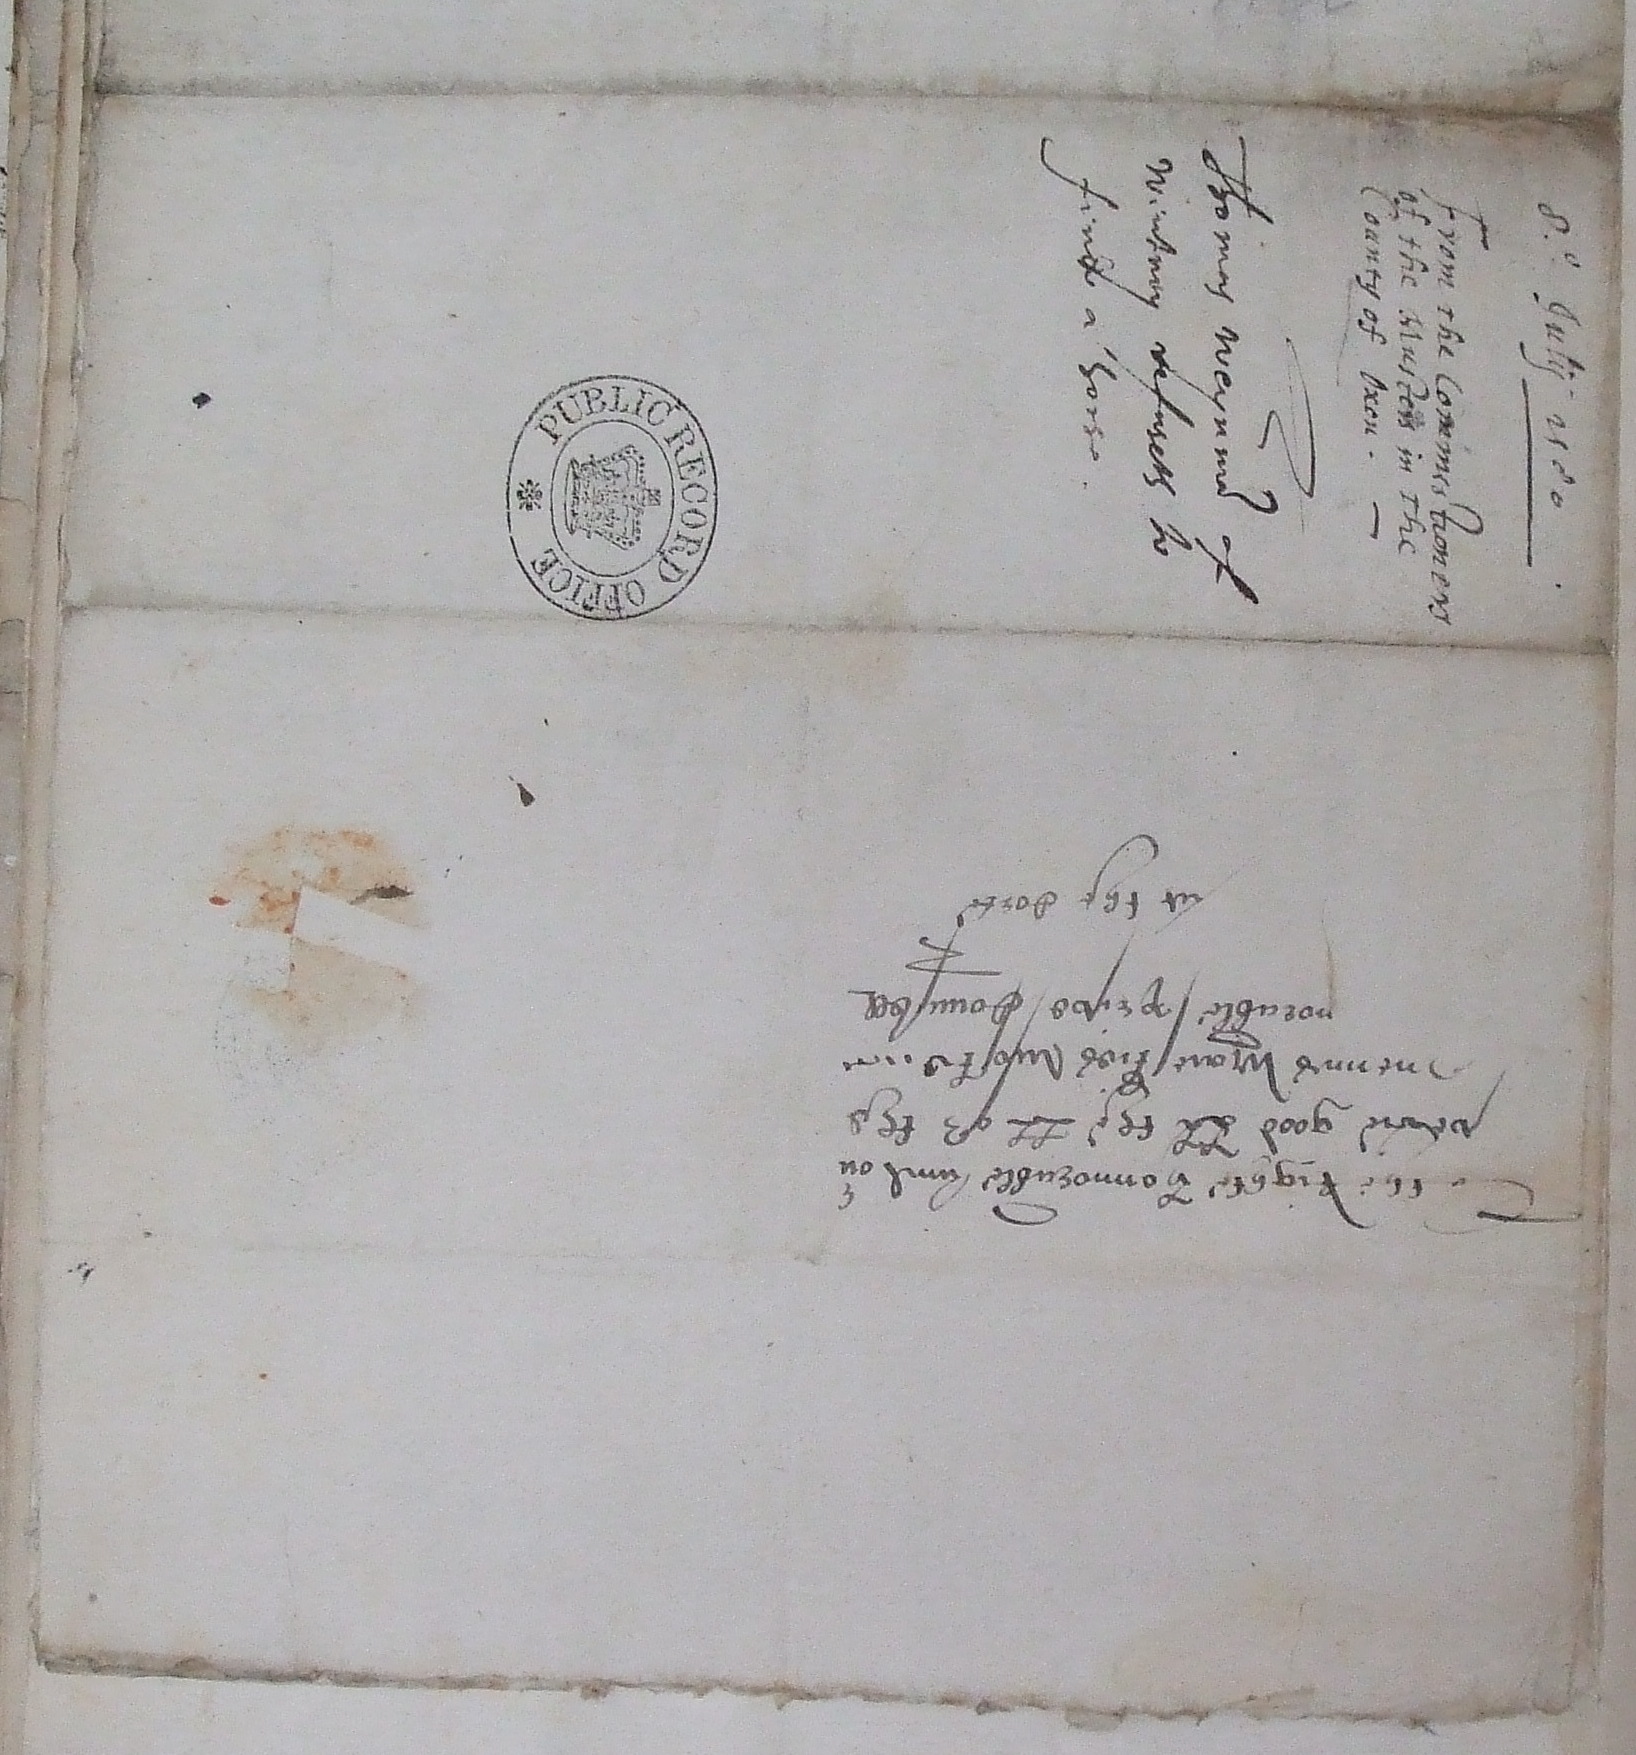 8.º Julij 1580.
From the Commissioners
of the Musters in the
County of Oxon.
Thomas Weynmã of
Wintney refuseth to
finde a horse.
PUBLIC RECORD OFFICE
To the Right Honnorable and o
good LL the LL of the
Quenes Ma Most
norable Counsell
at the Corte